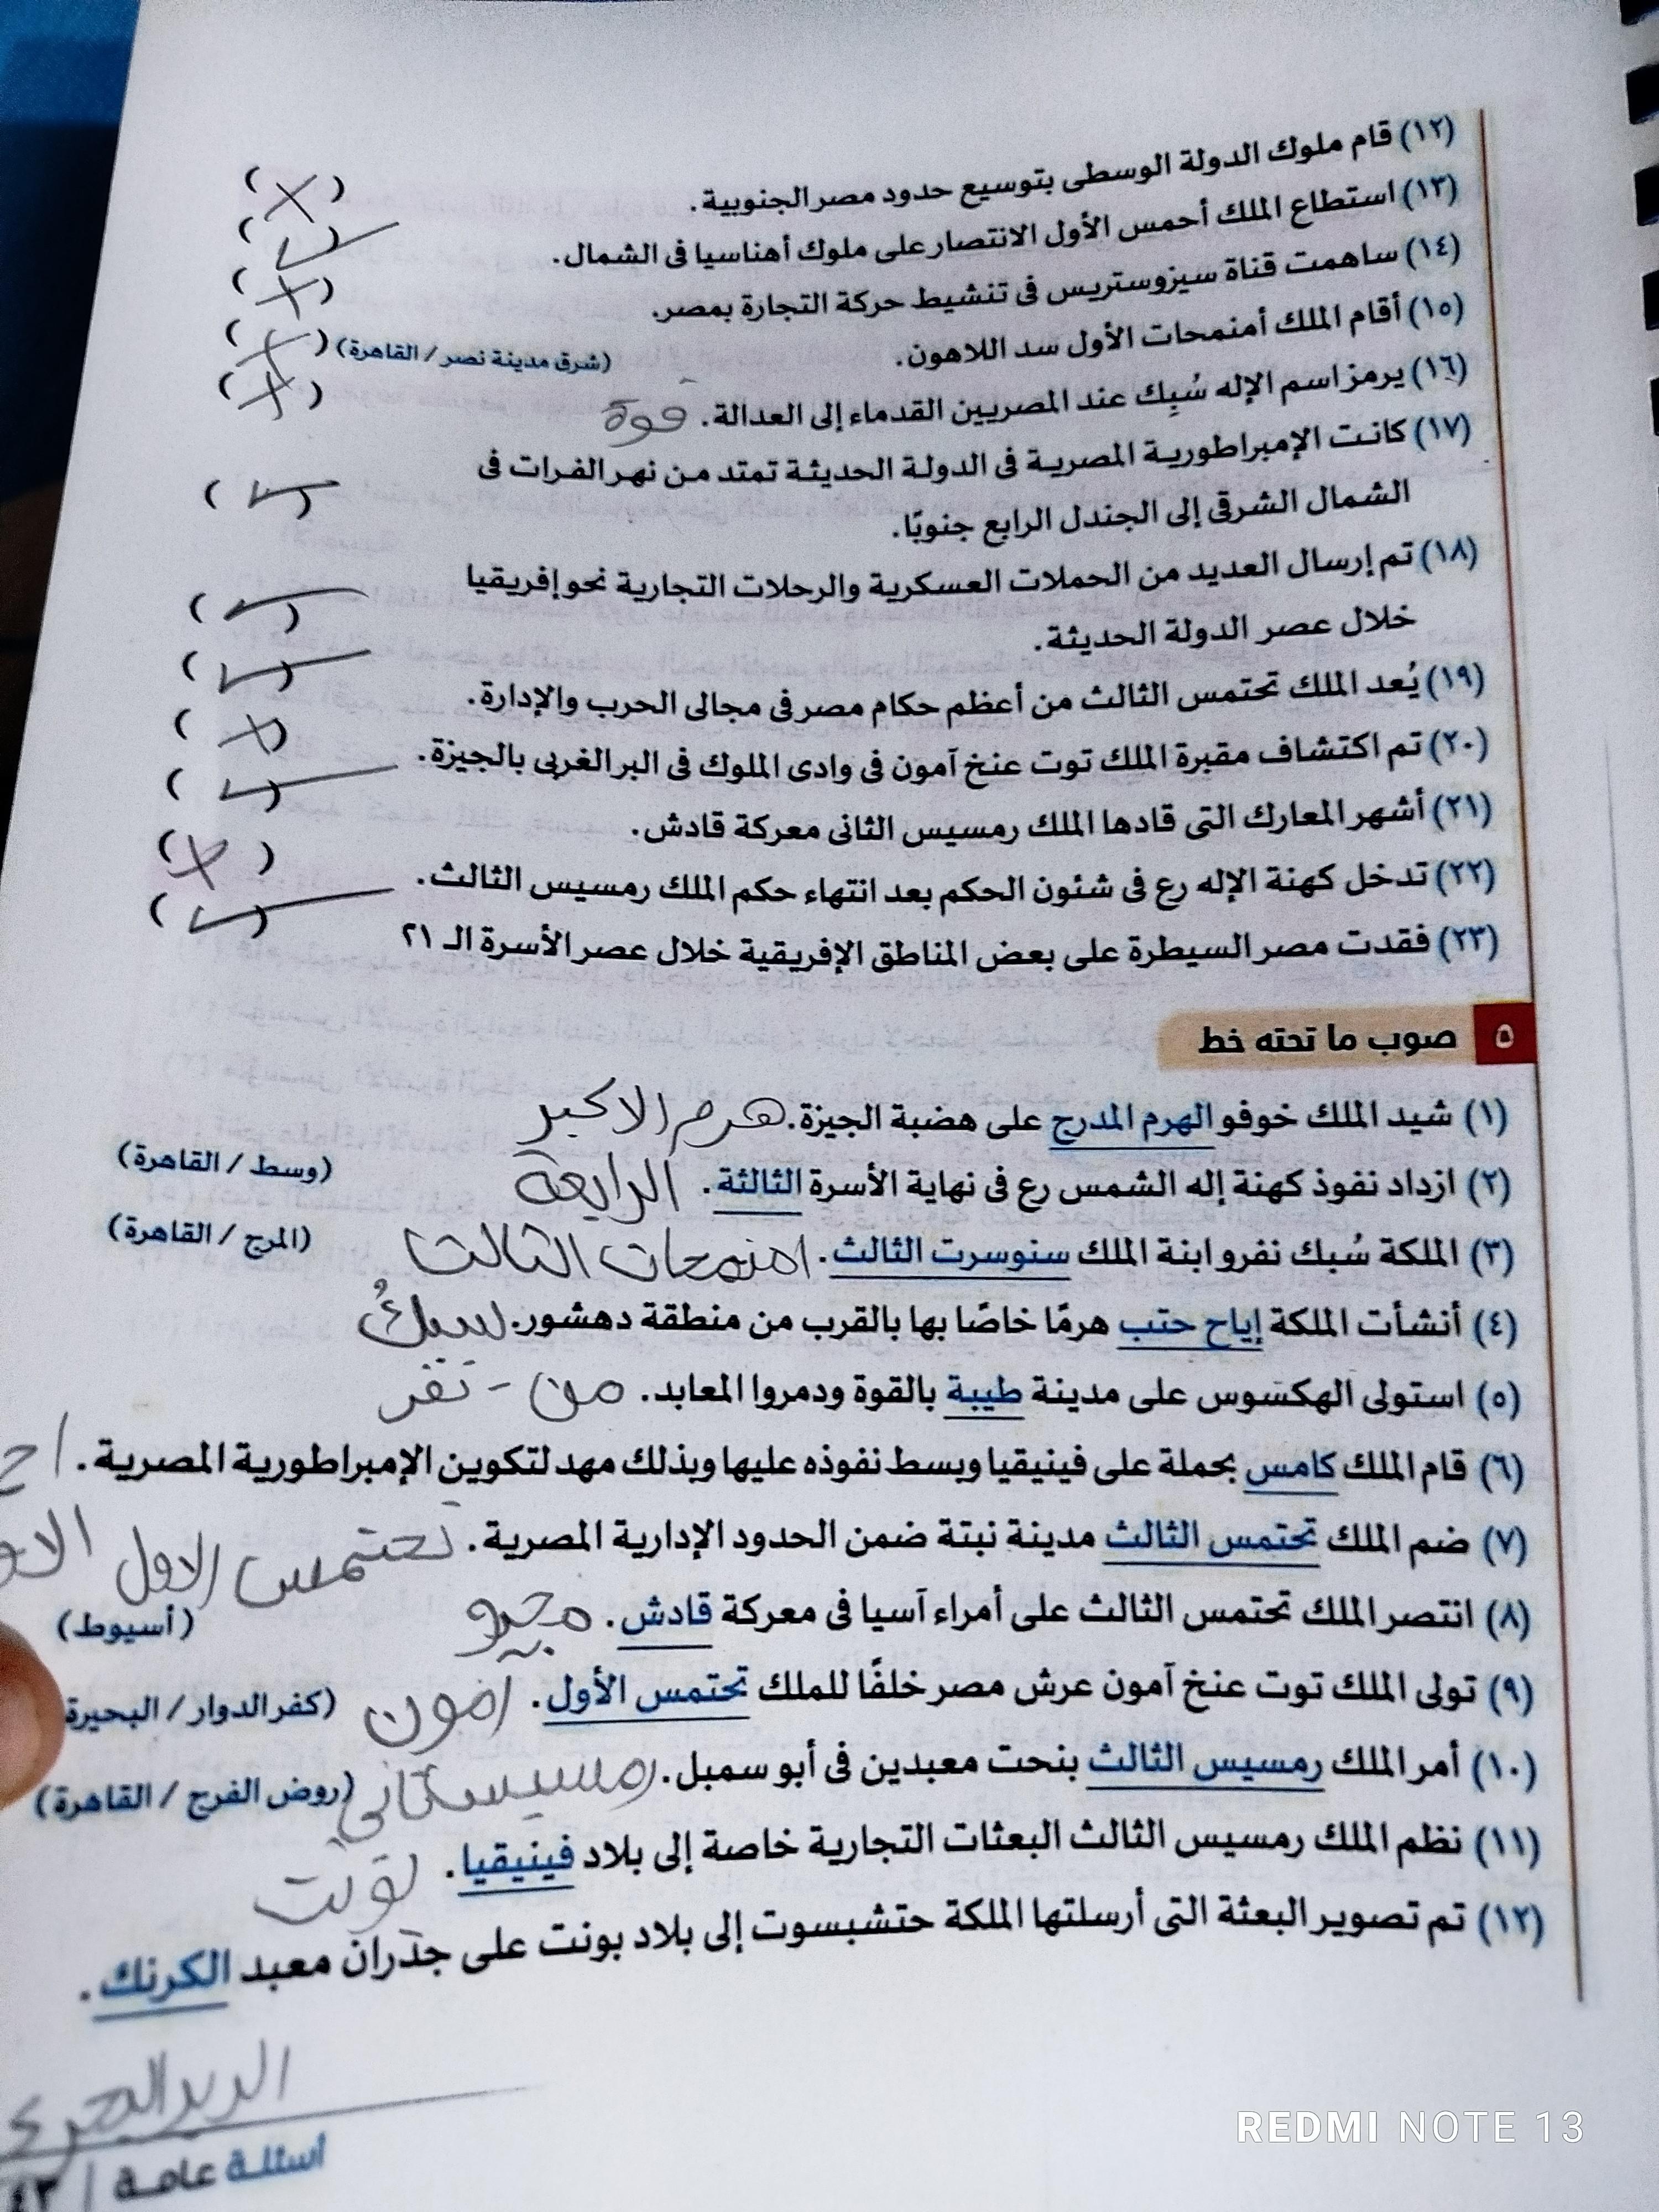 (١٢) قام ملوك الدولة الوسطى بتوسيع حدود مصر الجنوبية.
(١٣) استطاع الملك أحمس الأول الانتصار على ملوك أهناسيا فى الشمال. (×)
(١٤) ساهمت قناة سيزوستريس فى تنشيط حركة التجارة بمصر. (✓)
(١٥) أقام الملك أمنمحات الأول سد اللاهون. (×)
(١٦) يرمز اسم الإله سُبِك عند المصريين القدماء إلى العدالة. قوة (×) (شرق مدينة نصر / القاهرة)
(×)
(١٧) كانت الإمبراطورية المصرية فى الدولة الحديثة تمتد من نهر الفرات فى
الشمال الشرقى إلى الجندل الرابع جنوبًا. (✓)
(١٨) تم إرسال العديد من الحملات العسكرية والرحلات التجارية نحو إفريقيا
خلال عصر الدولة الحديثة. (✓)
(١٩) يُعد الملك تحتمس الثالث من أعظم حكام مصر فى مجالى الحرب والإدارة. (✓)
(٢٠) تم اكتشاف مقبرة الملك توت عنخ آمون فى وادى الملوك فى البر الغربى بالجيزة. (×)
(٢١) أشهر المعارك التى قادها الملك رمسيس الثانى معركة قادش. (✓)
(٢٢) تدخل كهنة الإله رع فى شئون الحكم بعد انتهاء حكم الملك رمسيس الثالث. (×)
(٢٣) فقدت مصر السيطرة على بعض المناطق الإفريقية خلال عصر الأسرة الـ ٢١ (✓)
٥ صوب ما تحته خط
(١) شيد الملك خوفو الهرم المدرج على هضبة الجيزة. هرم الاكبر
(٢) ازداد نفوذ كهنة إله الشمس رع فى نهاية الأسرة الثالثة. الرابعة (وسط / القاهرة)
(٣) الملكة سُبك نفرو ابنة الملك سنوسرت الثالث. امنمحات الثالث (المرج / القاهرة)
(٤) أنشأت الملكة إياح حتب هرمًا خاصًا بها بالقرب من منطقة دهشور. سبك
(٥) استولى الهكسوس على مدينة طيبة بالقوة ودمروا المعابد. من - نفر
(٦) قام الملك كامس بحملة على فينيقيا وبسط نفوذه عليها وبذلك مهد لتكوين الإمبراطورية المصرية.
(٧) ضم الملك تحتمس الثالث مدينة نبتة ضمن الحدود الإدارية المصرية. تحتمس الاول
(٨) انتصر الملك تحتمس الثالث على أمراء آسيا فى معركة قادش. مجدو (أسيوط)
(٩) تولى الملك توت عنخ آمون عرش مصر خلفًا للملك تحتمس الأول. امون (كفر الدوار / البحيرة
(١٠) أمر الملك رمسيس الثالث بنحت معبدين فى أبو سمبل. (روض الفرج / القاهرة)
(١١) نظم الملك رمسيس الثالث البعثات التجارية خاصة إلى بلاد فينيقيا. بونت
(١٢) تم تصوير البعثة التى أرسلتها الملكة حتشبسوت إلى بلاد بونت على جدران معبد الكرنك.
الدير البحرى
أسئلة عامة | ٤٣
REDMI NOTE 13